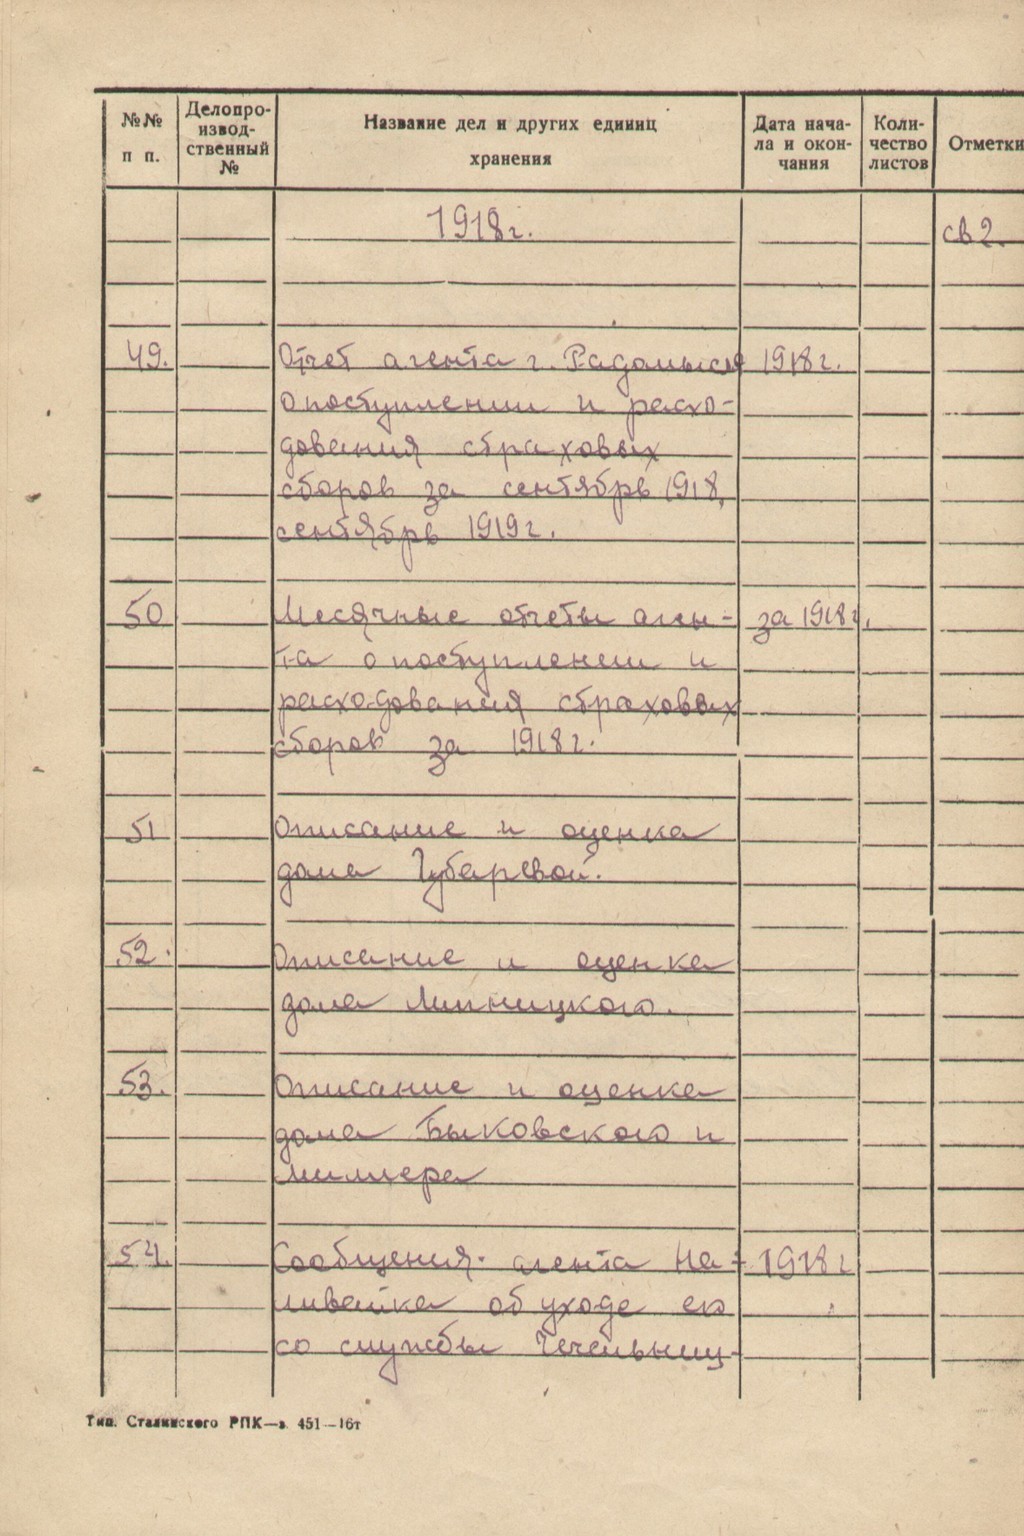 №№ п п.
Делопро-
извод-
ственный
№
Название дел и других единиц
хранения
Дата нача-
ла и окон-
чания
Коли-
чество
листов
Отметки
1918г.
св 2.
49. Отчет агента г. Радомысля 1918г.
о поступлении и расхо-
дования страховых
сборов за сентябрь 1918,
сентябрь 1919г.
50 Месячные отчеты аген- за 1918г.
та о поступлении и
расходования страховых
сборов за 1918г.
51 Описание и оценка
дома Губаревой.
52. Описание и оценка
дома Липницкого.
53. Описание и оценка
дома Быковского и
Миллера
54. Сообщения агента На- 1918г
ливайка об уходе его
со службы Чечельниц-
Тип. Сталинского РПК—з 451—16т